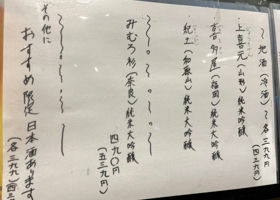 〜地酒(冷酒)〜各三九九円
(四三九円)
・上喜元(山形)純米大吟醸
・喜多屋(福岡)純米大吟醸
・紀土(和歌山)純米大吟醸
みむろ杉(奈良)純米大吟醸
四九〇円
(五三九円)
その他に
おすすめ限定日本酒あります
(各三九九)